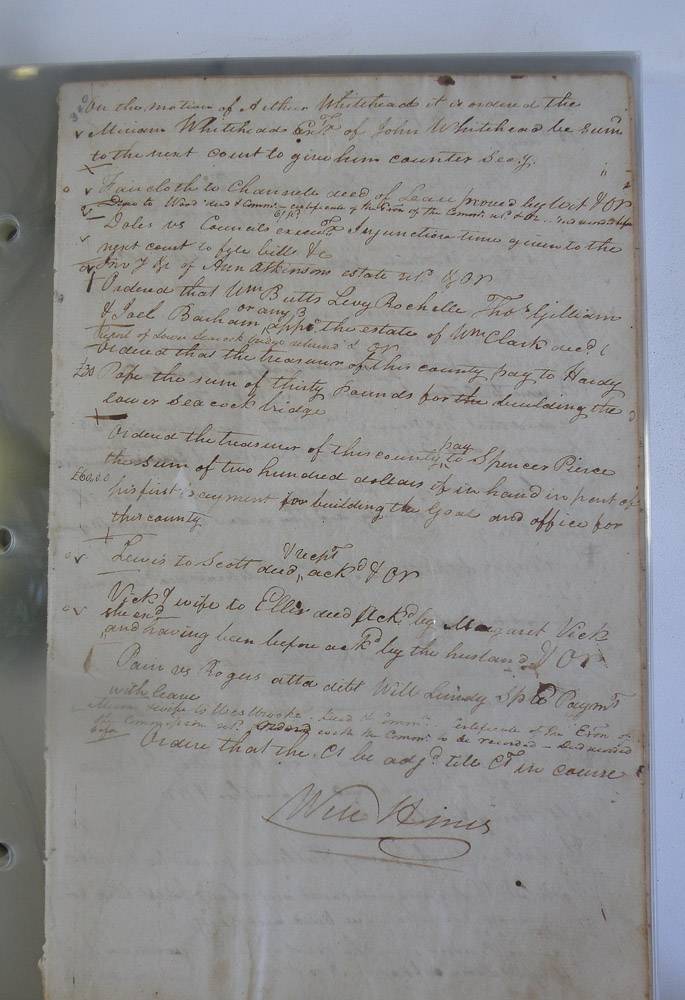 On the motion of Arthur Whitehead it is ordered the
Miriam Whitehead Exrx of John Whitehead be sumd
to the next court to give him counter Secy.
Faircloth to Channels deed of Lease proved by wit & OR
Same to Ward deed & Commn certificate of the Exon of the Commn retd & OR
Doles vs Councils execr Injunction time given to the
next court to file bill &c
Invy &c of Ann Atkinsons estate retd & OR
Ordered that Wm Butts Levy Rochelle Thos Gilliam
& Joel Barham or any 3 appr the estate of Wm Clark decd
report of Lower Seacock bridge returnd & OR
Ordered that the treasurer of this county pay to Hardy
£30 Pope the sum of thirty pounds for the building the
lower Seacock bridge
Ordered the treasurer of this county pay to Spencer Pierce
£60.0.0 the sum of two hundred dollars if in hand in part of
his first payment for building the Goal and office for
this county
Lewis to Scott deed & recpt ackd & OR
Vick & wife to Ellis deed Ackd by Margaret Vick
she exd
and having been before ackd by the husband & OR
Pain vs Rogus atta debt Will Lundy Sp B Paymt
with leave
& wife to Westbrooke Deed & Commn certificate of the Exon of
the Commission retd Ordered with the Commn to be recorded
Ordere that the Ct be adjd till Ct in course
Will Hines